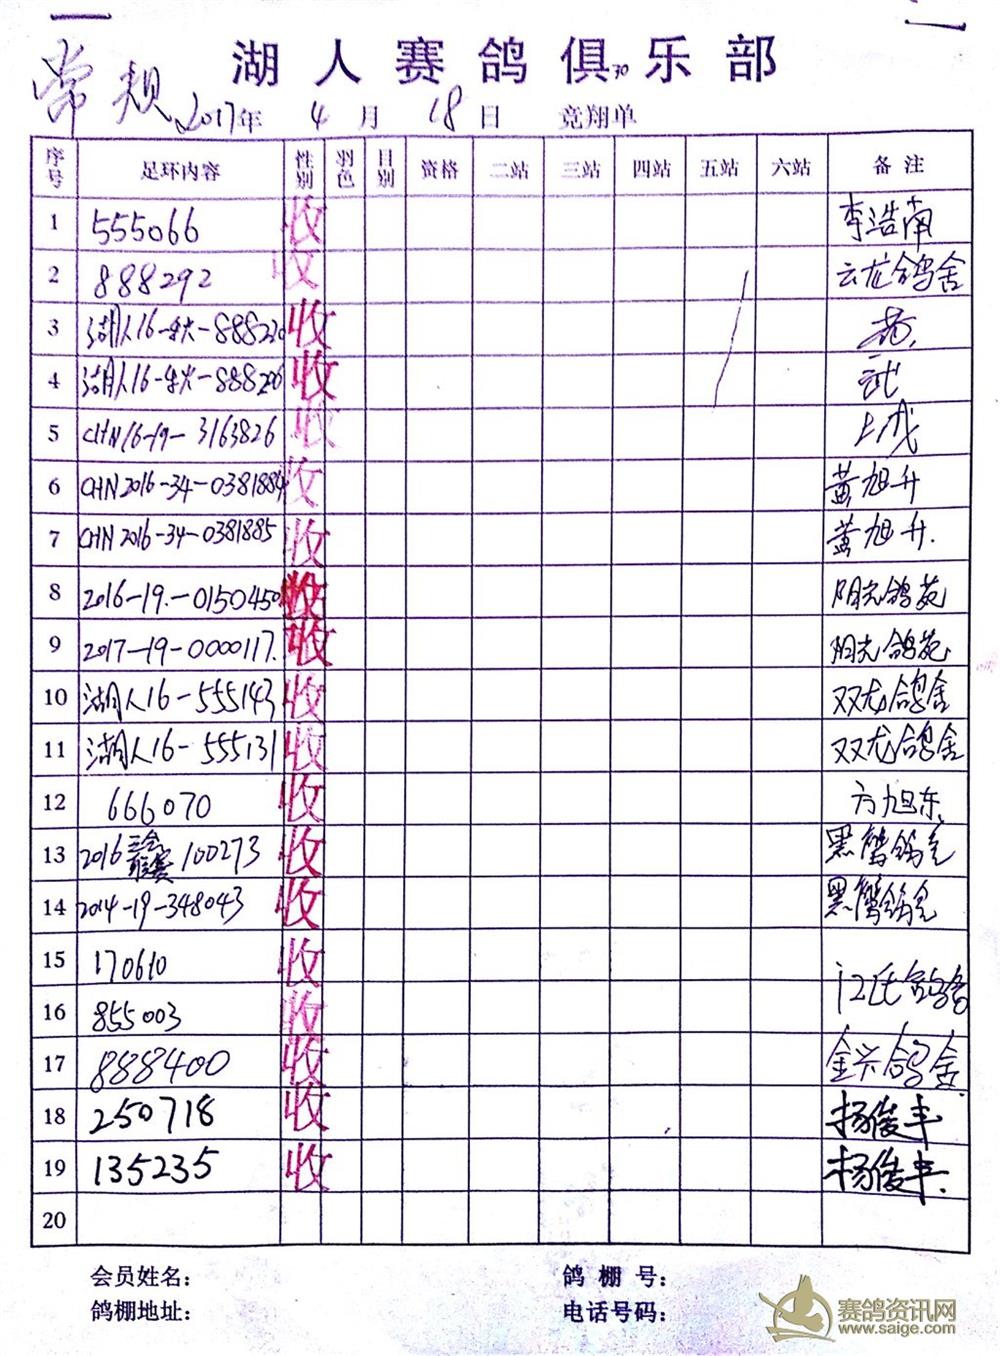 常规
湖人赛鸽俱乐部
2017年 4月 18日 竞翔单
序号 足环内容 性别 羽色 目别 资格 二站 三站 四站 五站 六站 备注
1 555066 收 李浩南
2 888292 收 云龙鸽舍
3 湖人16- 收
4 湖人16- 收
5 CHN16-19-3163826 收
6 CHN2016-34-0381884 收 黄旭升
7 CHN2016-34-0381885 收 黄旭升.
8 2016-19.-0150450 收 阳光鸽苑
9 2017-19-0000117. 收 阳光鸽苑
10 湖人16-555143 收 双龙鸽舍
11 湖人16-555131 收 双龙鸽舍
12 666070 收 方旭东
13 2016 100273 收
14 2014-19-348043 收
15 170610 收 江氏鸽舍
16 855003 收
17 888400 收 金兴鸽舍
18 250718 收 杨俊丰
19 135235 收 杨俊丰.
20
会员姓名: 鸽棚号:
鸽棚地址: 电话号码:
赛鸽资讯网
www.saige.com